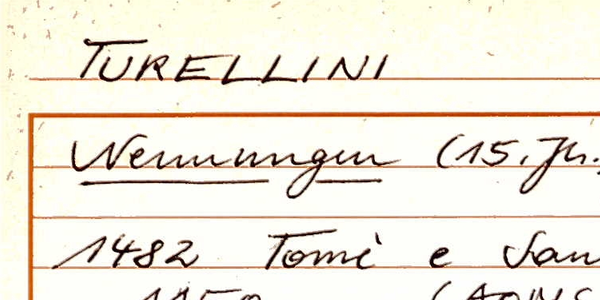 TURELLINI
Nennungen (15. Jh.
1482 Tomè e